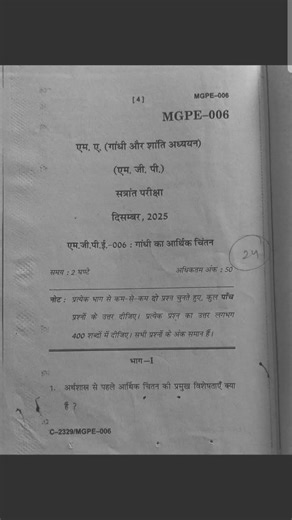 [4]
MGPE–006
MGPE–006
एम. ए. (गांधी और शांति अध्ययन)
(एम. जी. पी.)
सत्रांत परीक्षा
दिसम्बर, 2025
एम.जी.पी.ई.-006 : गांधी का आर्थिक चिंतन
24
समय : 2 घण्टे
अधिकतम अंक : 50
नोट : प्रत्येक भाग से कम-से-कम दो प्रश्न चुनते हुए, कुल पाँच
प्रश्नों के उत्तर दीजिए। प्रत्येक प्रश्न का उत्तर लगभग
400 शब्दों में दीजिए। सभी प्रश्नों के अंक समान हैं।
भाग—I
1. अर्थशास्त्र से पहले आर्थिक चिंतन की प्रमुख विशेषताएँ क्या
हैं ?
C–2329/MGPE–006